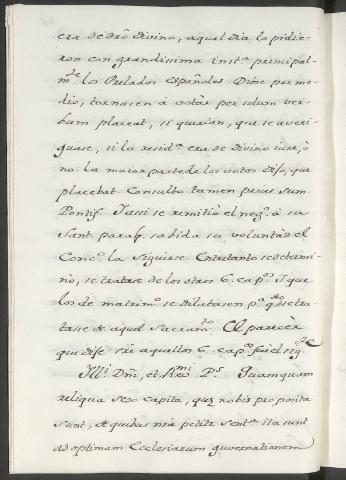 era de dró divino, aquel dia lo pidie-
ron con grandissima inst.ª principal-
m.te los Prelados Españoles Dióse por me-
dio, tornasen á votár per solum ver-
bum placeat, si querian, que se averi-
guase, si la resid.ª era de divino iure, ó
nó: la maior parte de los votos dijo, que
placebat. Consulto tamen prius Sum.
Pontif. Y assi se remitió el neg.º á su
Sant. para q. sabida su voluntad el
Conc.º la siguiese. Entretanto se determi-
nó, se tratase de los otros 6. cap.os Y que
los de matrim.º se dilatasen p.ª q.do se tra-
tase de aquel Sacram.to El parecér
que dije sre aquellos 6. cap.os fué el seg.te
Ill.i Dm̄, et R.mi P.s Quamquam
reliqua sex capita, que nobis proposita
sunt, et quibus nrā petitr sent.ª ita sunt
ad optimam Ecclesiarum guvernationem